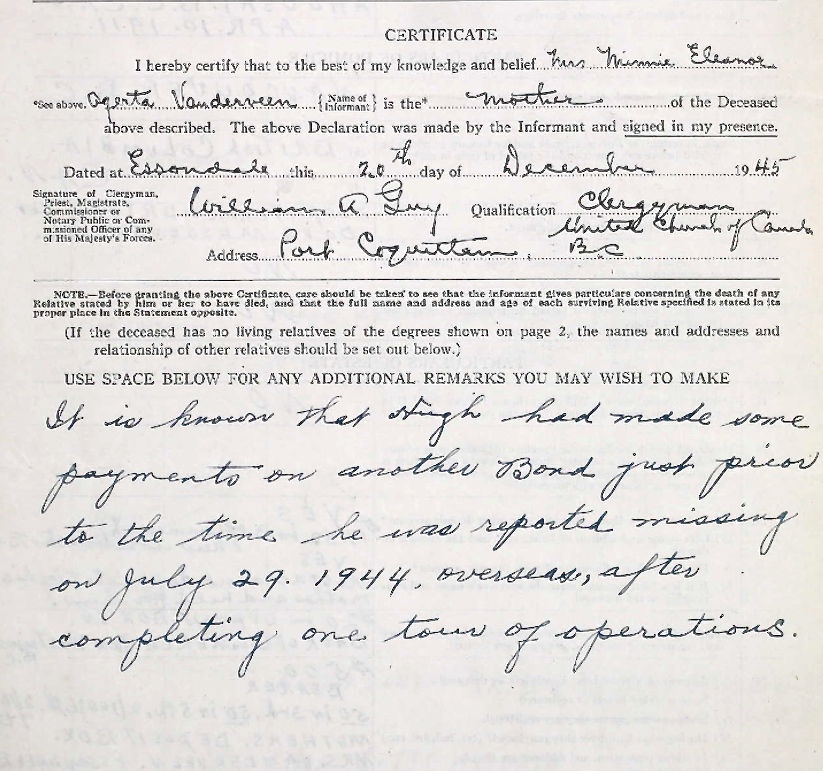 CERTIFICATE
I hereby certify that to the best of my knowledge and belief Mrs Minnie Eleanor
*See above. Ogerta Vanderveen {Name of Informant} is the* mother of the Deceased
above described. The above Declaration was made by the Informant and signed in my presence.
Dated at Essondale this 20th day of December 1945
Signature of Clergyman,
Priest, Magistrate,
Commissioner or
Notary Public or Com-
missioned Officer of any
of His Majesty's Forces.
William A Guy Qualification Clergyman
United Church of Canada
Address Port Coquitlam, B.C
NOTE.—Before granting the above Certificate, care should be taken to see that the informant gives particulars concerning the death of any
Relative stated by him or her to have died, and that the full name and address and age of each surviving Relative specified is stated in its
proper place in the Statement opposite.
(If the deceased has no living relatives of the degrees shown on page 2, the names and addresses and
relationship of other relatives should be set out below.)
USE SPACE BELOW FOR ANY ADDITIONAL REMARKS YOU MAY WISH TO MAKE
It is known that Hugh had made some
payments on another Bond just prior
to the time he was reported missing
on July 29. 1944, overseas, after
completing one tour of operations.